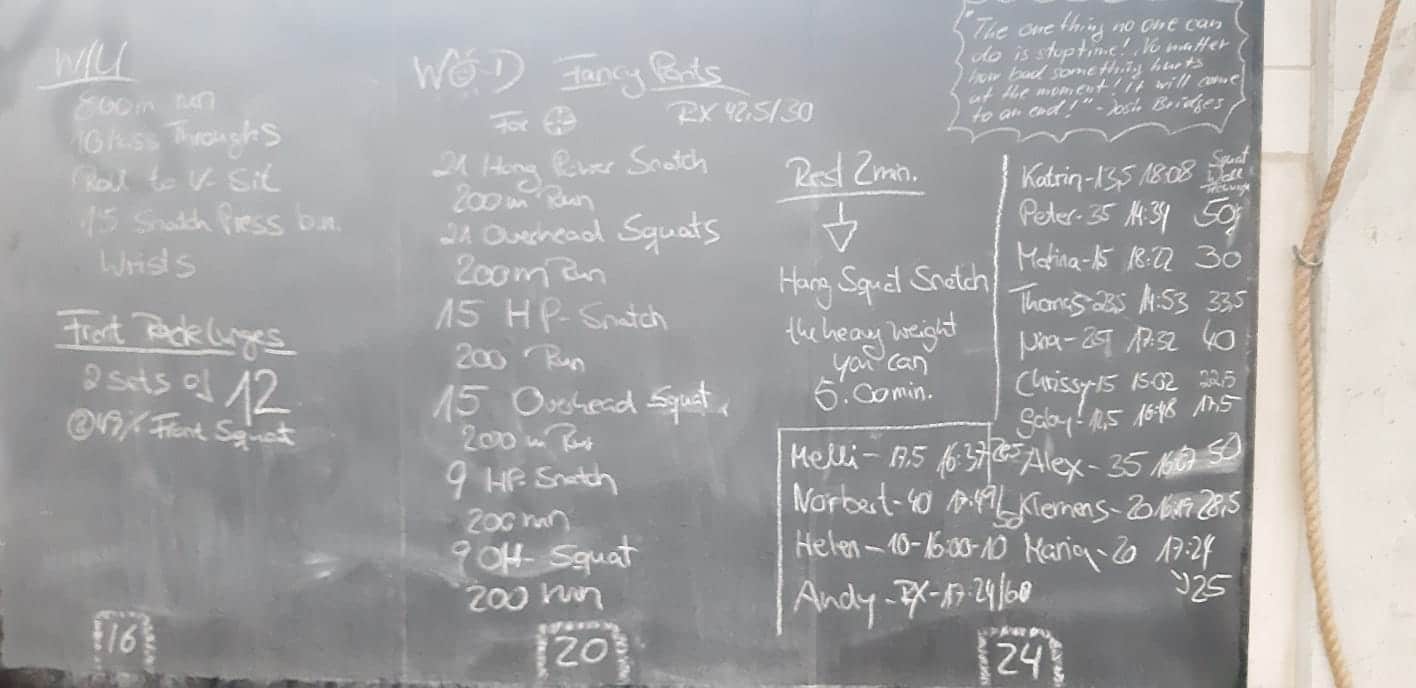 W/U
800m run
10 Pass Throughs
Roll to V-Sit
15 Snatch Press b.n.
Wrists
Front Rack Lunges
2 sets of 12
Front Squat
16
WOD Fancy Pants
For
RX 42,5/30
21 Hang Power Snatch
200m Run
21 Overhead Squats
200m Run
15 HP-Snatch
200 Run
15 Overhead Squat
200m Run
9 HP. Snatch
200 run
9 OH-Squat
200 run
20
"The one thing no one can
do is stop time! No matter
how bad something hurts
at the moment! it will come
to an end!" - Josh Bridges
Rest 2min.
Hang Squat Snatch
the heavy weight
you can
5.00min.
Squat
Katrin-13,5 18:08
Peter-35 14:34 50
Matina-15 18:22 30
Thomas 14:53 33,5
Nina- 17:32 40
Chrissy-15 15:02 22,5
Gaby- 16:48 17,5
Melli - 17,5 16:37
Alex - 35 50
Norbert-40 17:49/50
Klemens-20 28,5
Helen-10-16:00-10
Maria-20 17:24
25
Andy-RX-17:24/60
24